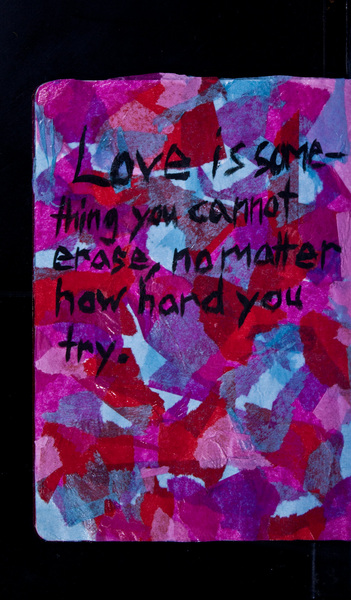 Love is some-
thing you cannot
erase, no matter
how hard you
try.